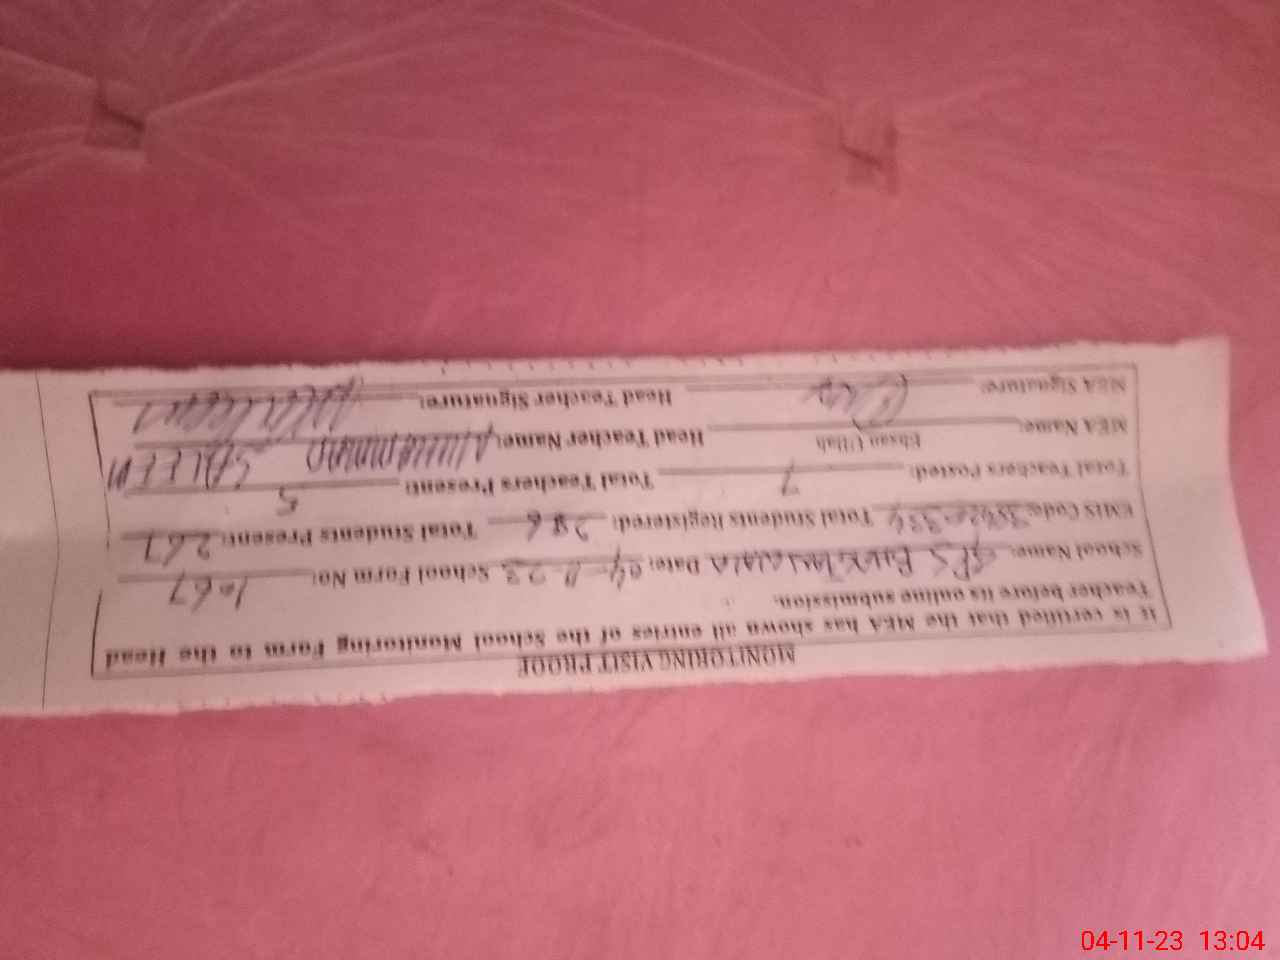 MONITORING VISIT PROOF
It is certified that the MEA has shown all entries of the School Monitoring Form to the Head
Teacher before its online submission.
School Name: GPS Date: 04-11-23 School Form No: 1067
EMIS Code: Total Students Registered: 286 Total Students Present: 267
Total Teachers Posted: 7 Total Teachers Present: 5
MEA Name: Ehsan Ullah Head Teacher Name: MUHAMMAD SALEEM
MEA Signature: Head Teacher Signature:
04-11-23 13:04